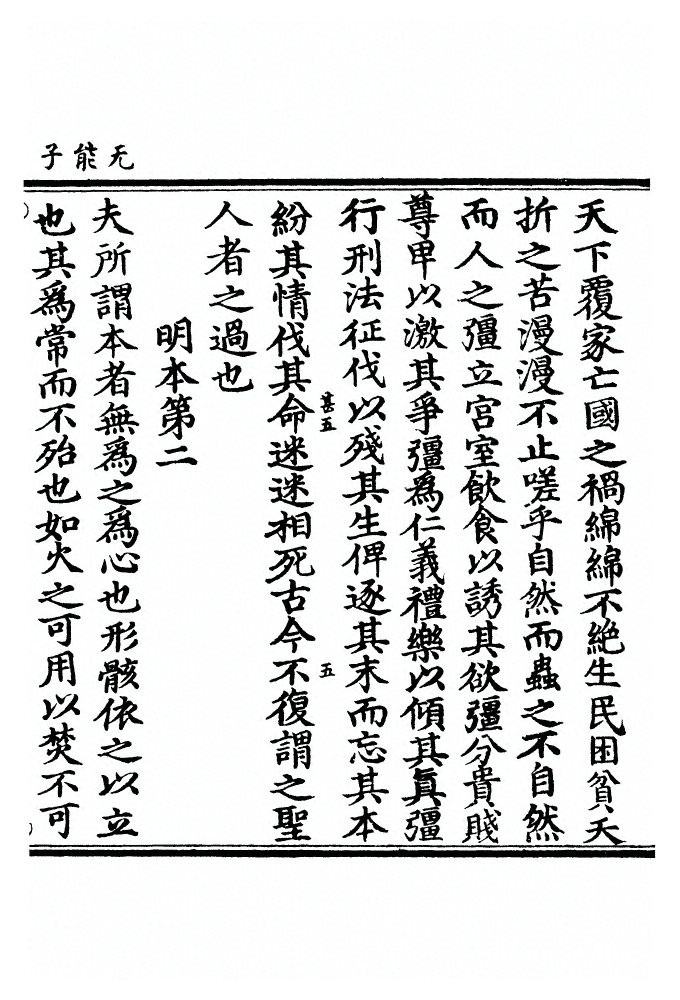 无能子
天下覆家亡國之禍綿綿不絕生民困貧夭
折之苦漫漫不止嗟乎自然而蟲之不自然
而人之彊立宮室飲食以誘其欲彊分貴賤
尊卑以激其爭彊爲仁義禮樂以傾其真彊
行刑法征伐以殘其生俾逐其末而忘其本
紛其情伐其命迷迷相死古今不復謂之聖
甚五
五
人者之過也
明本第二
夫所謂本者無爲之爲心也形骸依之以立
也其爲常而不殆也如火之可用以焚不可